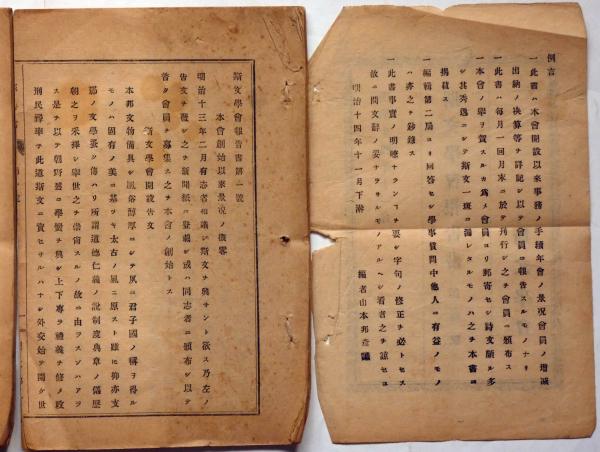 例言
一此書ハ本會開設以來事務ノ手續年會ノ景況會員ノ增减
出納ノ决算等チ詳記シ以テ會員ニ報告スルモノナリ
一此書ハ每月一回月末ニ於テ刊行シ之チ會員ニ頒布ス
一本會ノ擧ヲ賛スルカ爲メ會員ヨリ郵寄セシ詩文頗ル多
シ其秀逸ニシテ斯文ノ一斑ニ漏レタルモノハ之チ本書ニ
揭載ス
一編輯第二局ヨリ回答セシ學事質問中他人ニ有益ノモノ
ハ亦之チ鈔錄ス
一此書事實ノ明瞭ナランコチ要シ字句ノ修正チ必トセス
故ニ間文辭ノ妥ナラサルモノアルヘシ看者之チ諒セヨ
明治十四年十一月下澣
編者山本邦彥識
斯文學會報告書第一號
本會創始以來景況ノ槪畧
明治十三年二月有志者相議シ斯文チ興サント欲ス乃左ノ
告文チ發シ之チ新聞紙ニ登載シ或ハ同志者ニ頒布シ以テ
普ク會員チ募集ス之チ本會ノ創始トス
斯文學會開設告文
本邦文物備具シ風俗醇厚ニシテ夙ニ君子國ノ稱チ得ル
モノハ固有ノ美ニ基ツキ太古ノ風ニ原スト雖モ抑亦支
那ノ文學蚤ク傳ハリ所謂道德仁義ノ說制度典章ノ儀歷
朝之チ采擇シ擧世之チ崇尙スルノ故ニ由ラスンハアラ
ス是チ以テ朝野盛ニ學黌チ興シ上下專ラ禮義チ修ノ政
刑民彛率テ此道斯文ニ資セサルハナシ外交始テ開ク世